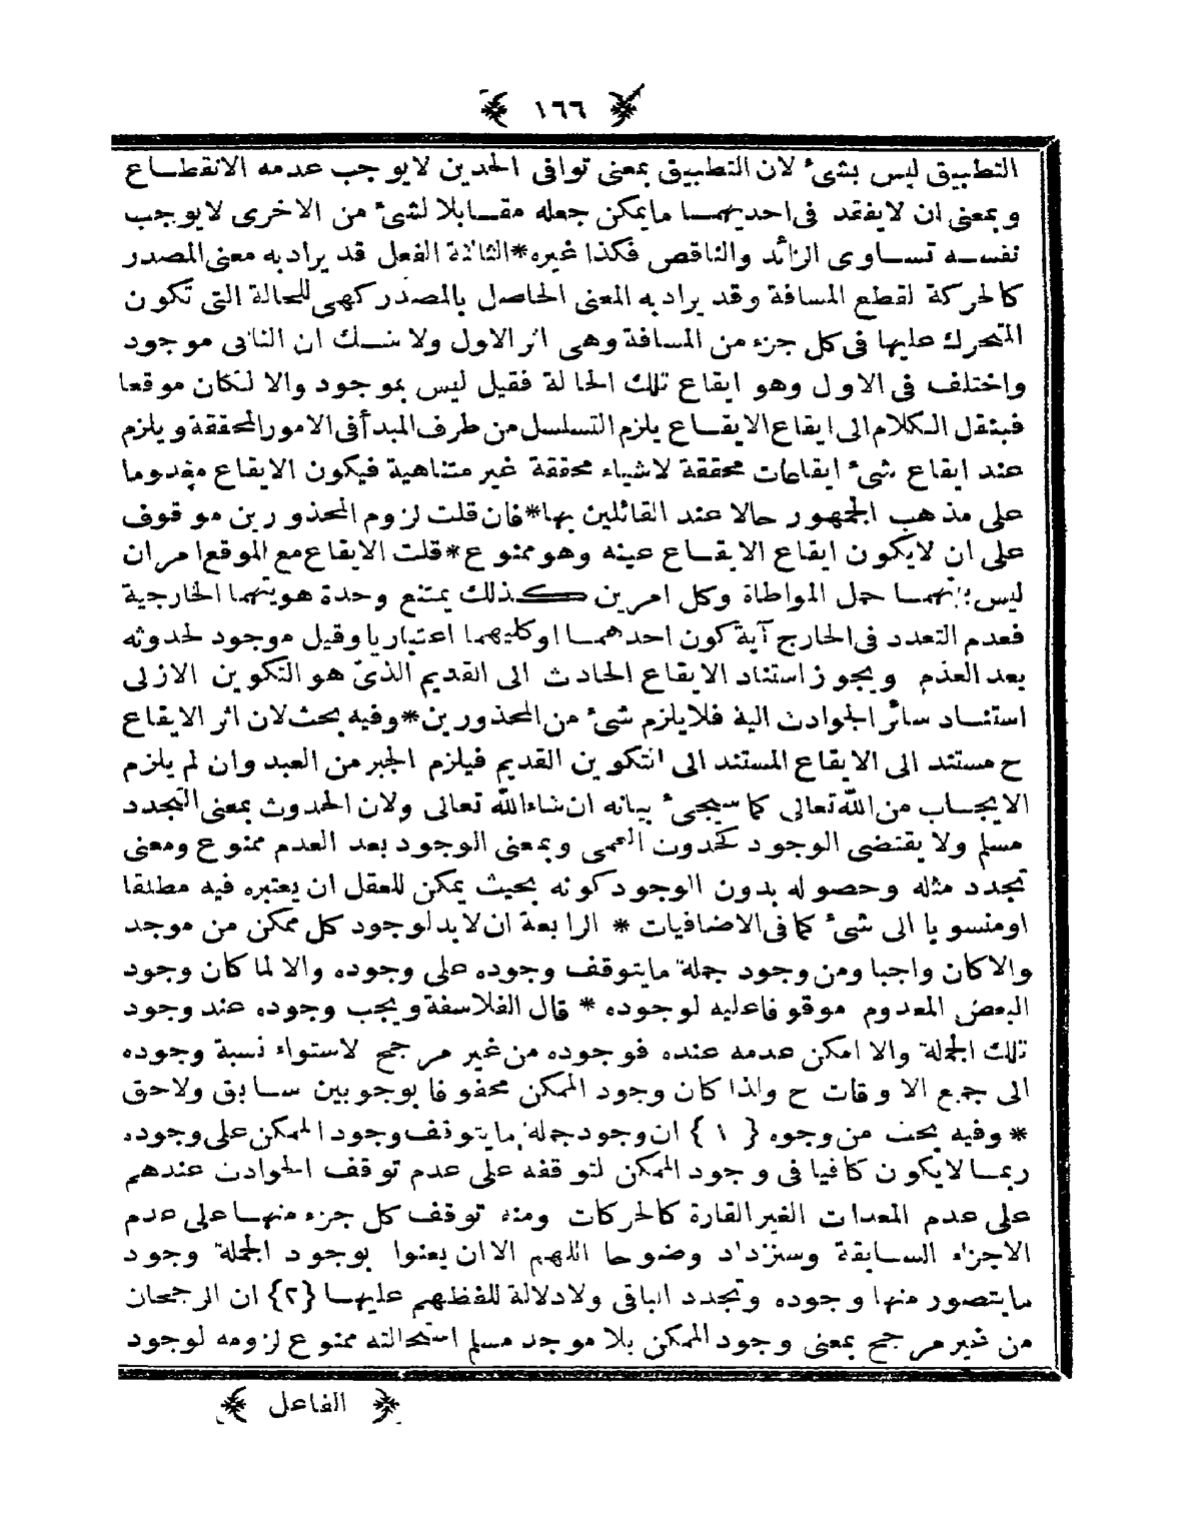 ﴿ ١٦٦ ﴾
التطبيق ليس بشئ لان التطبيق بمعنى توافى الحدين لايوجب عدمه الانقطاع
وبمعنى ان لايفقد فى احديهما مايمكن جعله مقابلا لشئ من الاخرى لايوجب
نفسه تساوى الزائد والناقص فكذا غيره * الثالثة الفعل قد يراد به معنى المصدر
كالحركة لقطع المسافة وقد يراد به المعنى الحاصل بالمصدر كهى للحالة التى تكون
المتحرك عليها فى كل جزء من المسافة وهى اثر الاول ولا شك ان الثانى موجود
واختلف فى الاول وهو ايقاع تلك الحالة فقيل ليس بموجود والا لكان موقعا
فينتقل الكلام الى ايقاع الايقاع يلزم التسلسل من طرف المبدأ فى الامور المحققة ويلزم
عند ايقاع شئ ايقاعات محققة لاشياء محققة غير متناهية فيكون الايقاع معدوما
على مذهب الجمهور حالا عند القائلين بها * فان قلت لزوم المحذورين موقوف
على ان لايكون ايقاع الايقاع عينه وهو ممنوع * قلت الايقاع مع الموقع امران
ليس بينهما حمل المواطاة وكل امرين كذلك يمتنع وحدة هويتهما الخارجية
فعدم التعدد فى الخارج آية كون احدهما اوكليهما اعتباريا وقيل موجود لحدوثه
بعد العدم ويجوز استناد الايقاع الحادث الى القديم الذى هو التكوين الازلى
استناد سائر الحوادث اليه فلا يلزم شئ من المحذورين * وفيه بحث لان اثر الايقاع
ح مستند الى الايقاع المستند الى التكوين القديم فيلزم الجبر من العبد وان لم يلزم
الايجاب من الله تعالى كما سيجئ بيانه ان شاء الله تعالى ولان الحدوث بمعنى التجدد
مسلم ولا يقتضى الوجود كحدوث العمى وبمعنى الوجود بعد العدم ممنوع ومعنى
تجدد مثله وحصوله بدون الوجود كونه بحيث يمكن للعقل ان يعتبره فيه مطلقا
اومنسوبا الى شئ كما فى الاضافيات * الرابعة ان لابد لوجود كل ممكن من موجد
والاكان واجبا ومن وجود جملة مايتوقف وجوده على وجوده والا لما كان وجود
البعض المعدوم موقوفا عليه لوجوده * قال الفلاسفة ويجب وجوده عند وجود
تلك الجملة والا امكن عدمه عنده فوجوده من غير مرجح لاستواء نسبة وجوده
الى جميع الاوقات ح ولذا كان وجود الممكن محفوفا بوجوبين سابق ولاحق
* وفيه بحث من وجوه {١} ان وجود جملة مايتوقف وجود الممكن على وجوده
ربما لايكون كافيا فى وجود الممكن لتوقفه على عدم توقف الحوادث عندهم
على عدم المعدات الغير القارة كالحركات ومنه توقف كل جزء منها على عدم
الاجزاء السابقة وستزداد وضوحا اللهم الا ان يعنوا بوجود الجملة وجود
مايتصور منها وجوده وتجدد الباقى ولادلالة للفظهم عليها {٢} ان الرجحان
من غير مرجح بمعنى وجود الممكن بلا موجد مسلم استحالته ممنوع لزومه لوجود
﴿ الفاعل ﴾